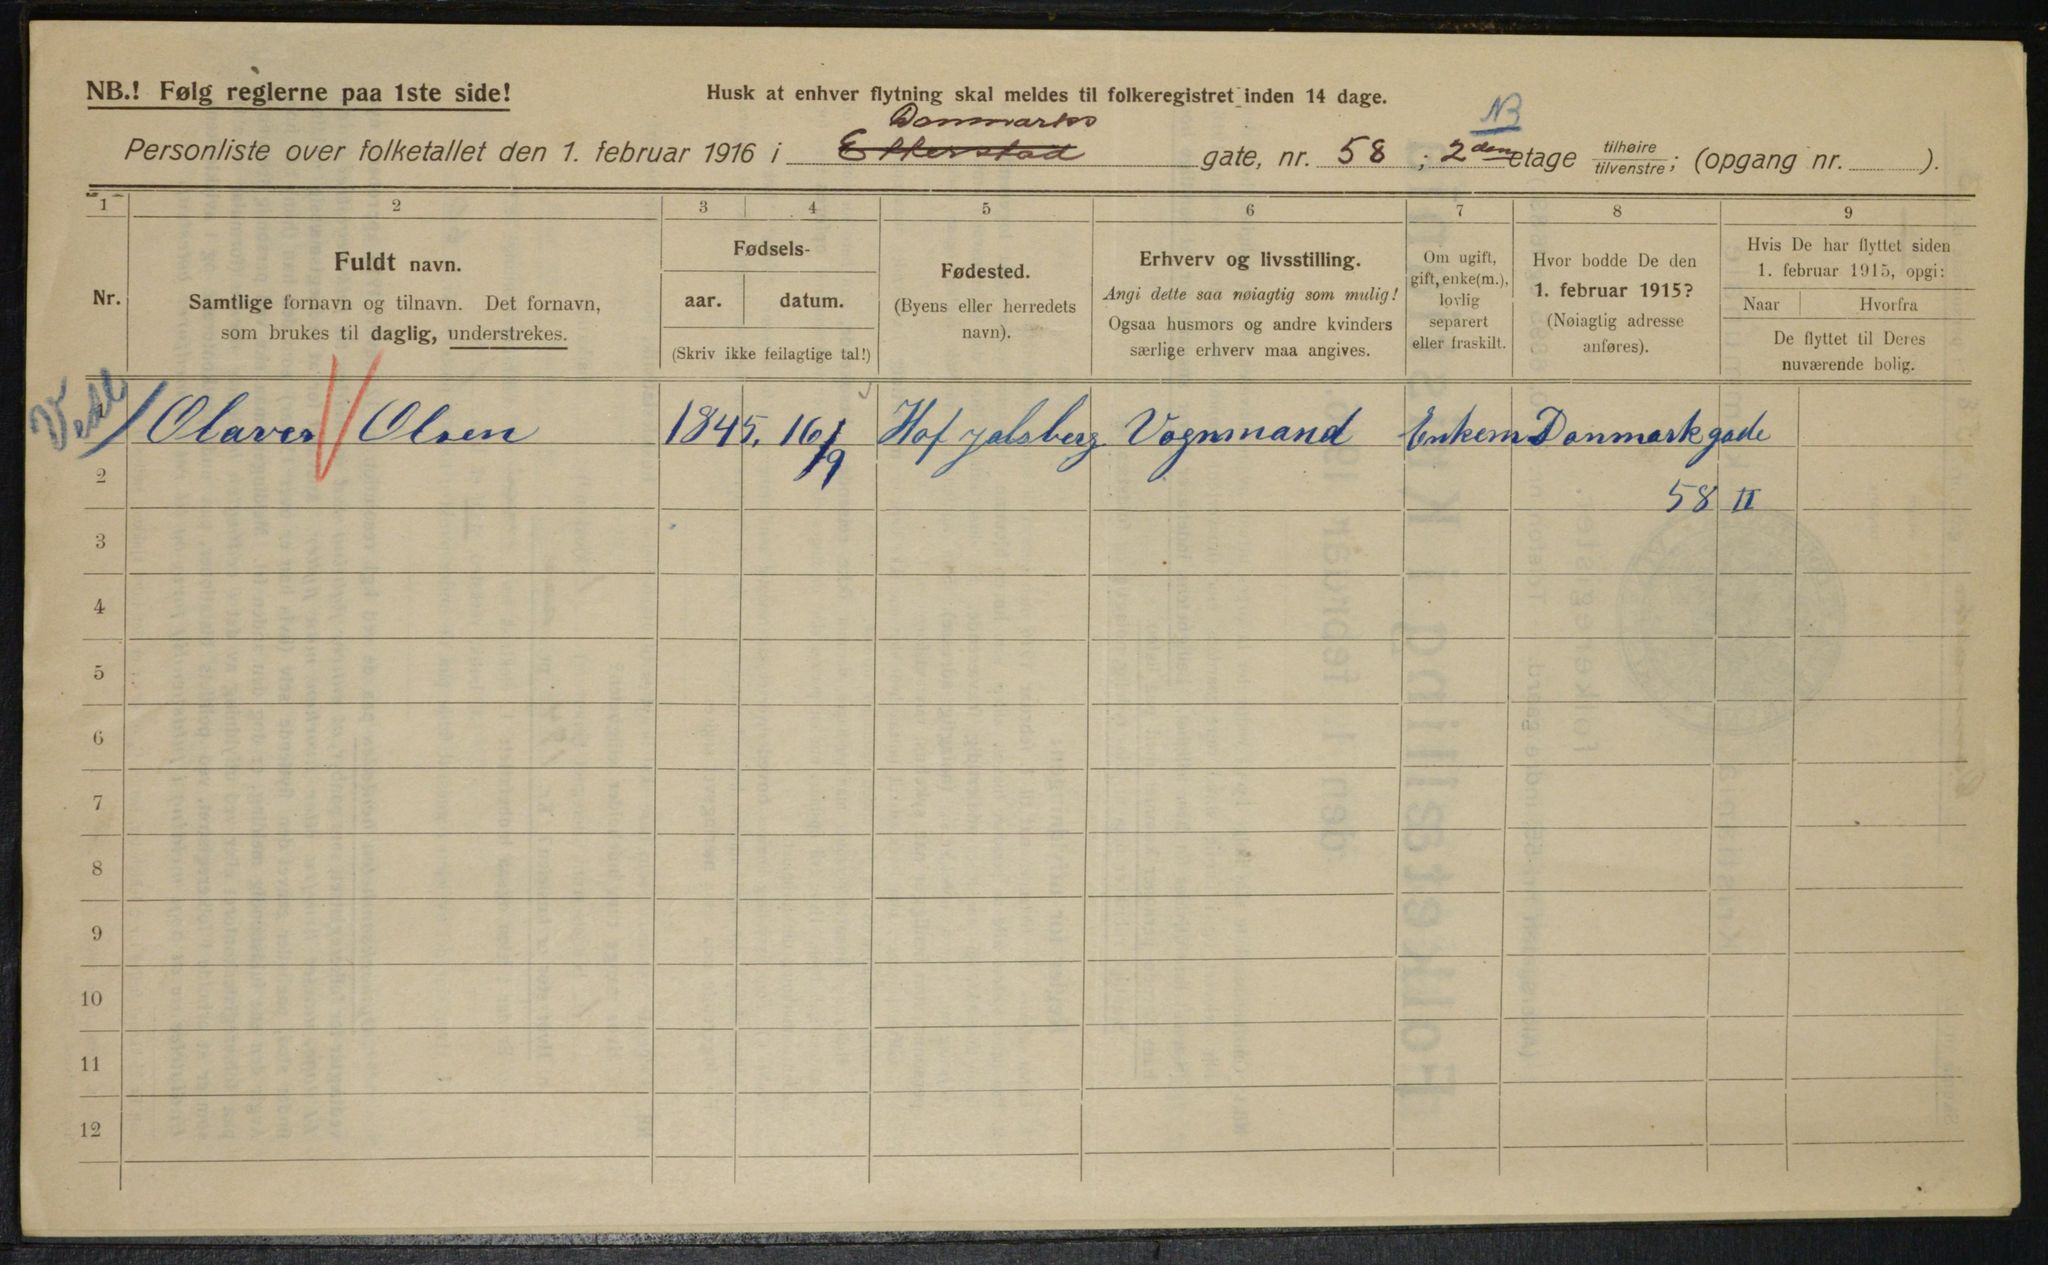 NB.! Følg reglerne paa 1ste side!
Husk at enhver flytning skal meldes til folkeregistret inden 14 dage.
NB
Danmarks
Personliste over folketallet den 1. februar 1916 i Etterstad gate, nr. 58 ; 2den etage tilhøire/tilvenstre; (opgang nr. ).
1 2 3 4 5 6 7 8 9
Nr.
Fuldt navn.
Samtlige fornavn og tilnavn. Det fornavn,
som brukes til daglig, understrekes.
Fødsels-
aar. datum.
(Skriv ikke feilagtige tal!)
Fødested.
(Byens eller herredets
navn).
Erhverv og livsstilling.
Angi dette saa nøiagtig som mulig!
Ogsaa husmors og andre kvinders
særlige erhverv maa angives.
Om ugift,
gift, enke(m.),
lovlig
separert
eller fraskilt.
Hvor bodde De den
1. februar 1915?
(Nøiagtig adresse
anføres).
Hvis De har flyttet siden
1. februar 1915, opgi:
Naar Hvorfra
De flyttet til Deres
nuværende bolig.
1 Olaves Olsen 1845. 16/9 Hof Jalsberg Vognmand Enkem Danmarkgade
2 58 II
3
4
5
6
7
8
9
10
11
12